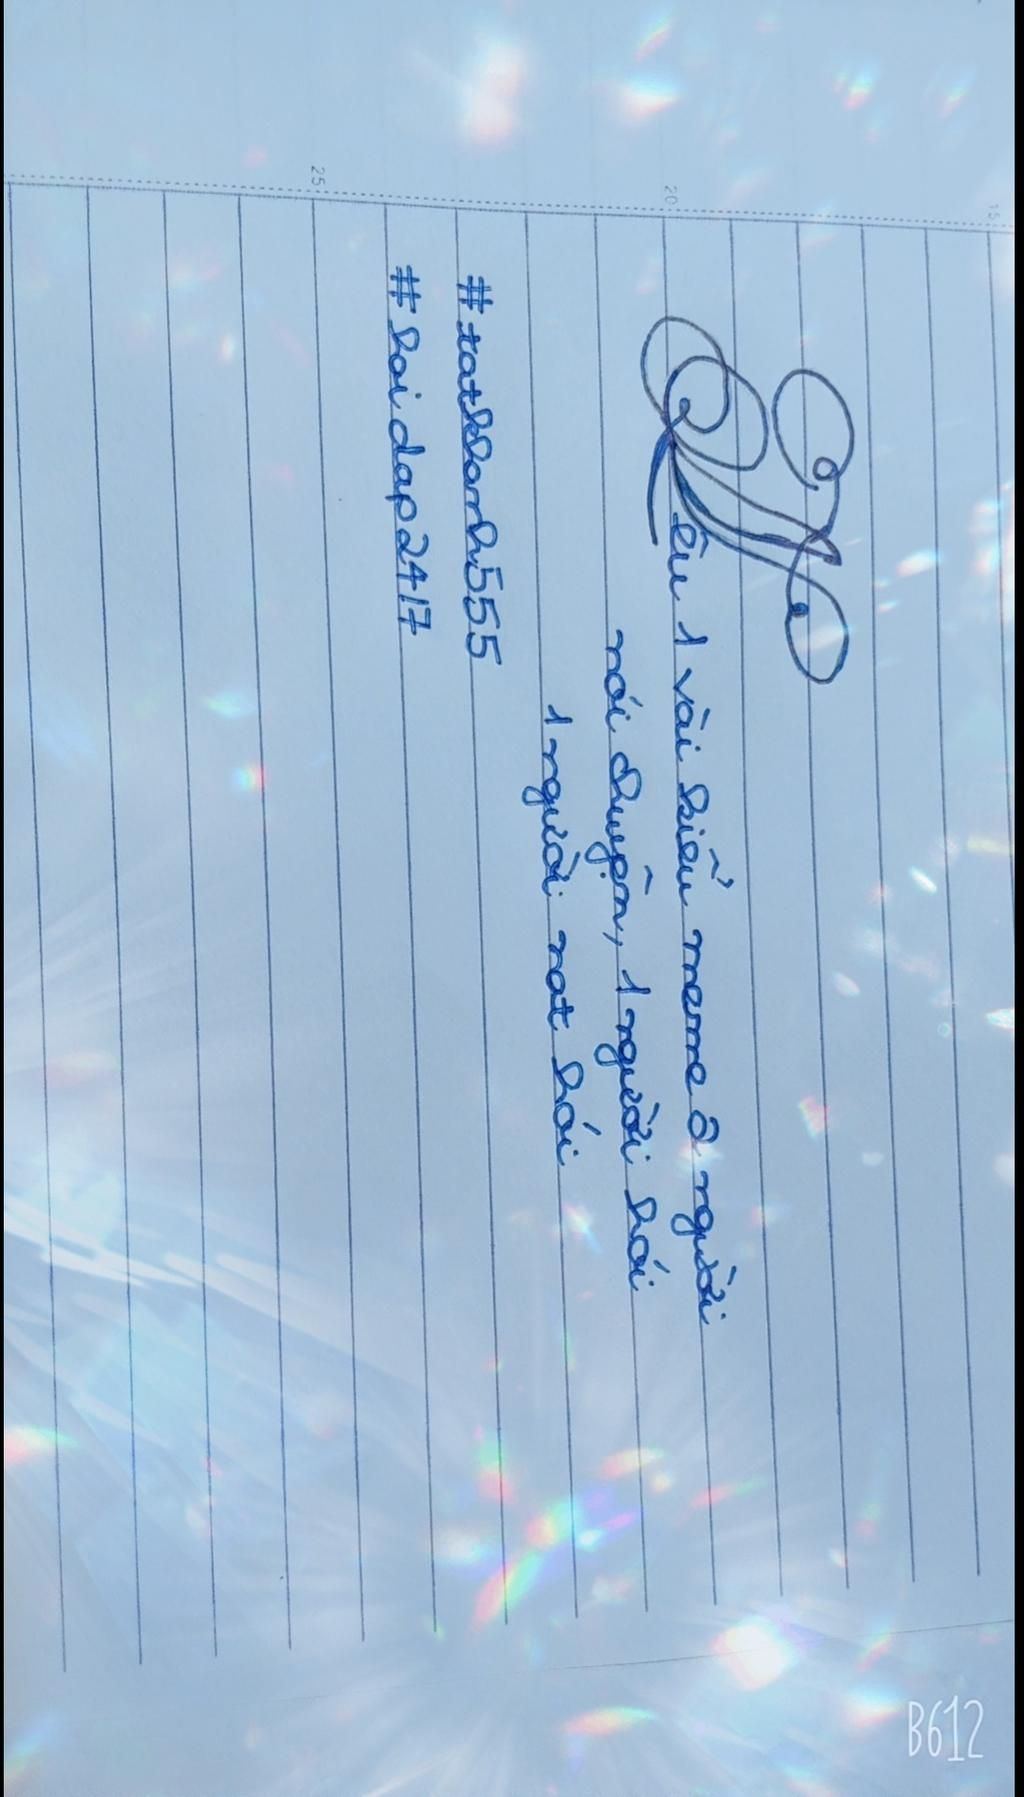 Nêu 1 vài kiểu meme 2 người
nói chuyện, 1 người hói
1 người not hói
#xatkhanh555
#hoidap247
15
20
25
B612